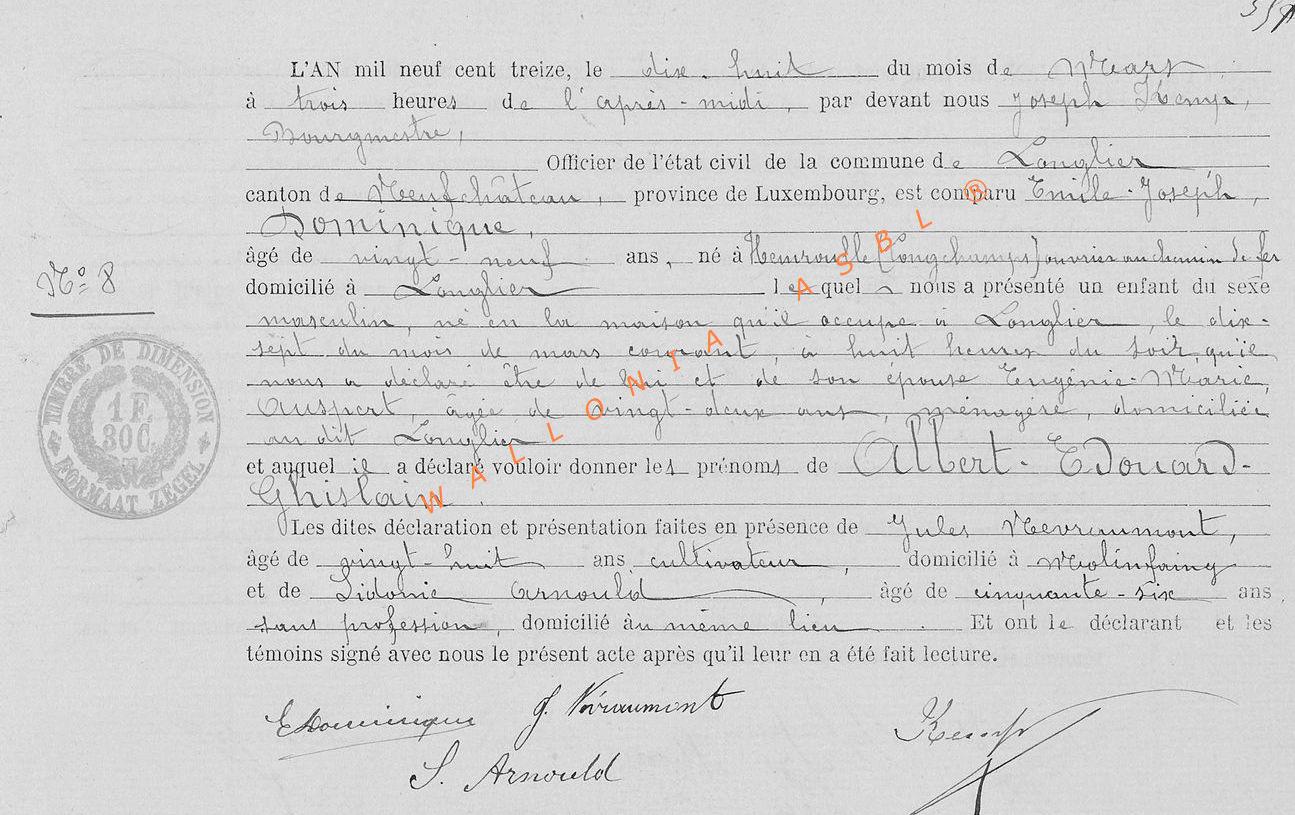 L'AN mil neuf cent treize, le dix-huit du mois de Mars
à trois heures de l'après-midi, par devant nous Joseph Kemp,
Bourgmestre,
Officier de l'état civil de la commune de Longlier
canton de Neufchâteau, province de Luxembourg, est comparu Emile-Joseph,
Dominique,
âgé de vingt-neuf ans, né à Hemroulle (Longchamps) ouvrier au chemin de fer
domicilié à Longlier lequel nous a présenté un enfant du sexe
N° 8
masculin, né en la maison qu'il occupe à Longlier, le dix-
sept du mois de mars courant, à huit heures du soir, qu'il
nous a déclaré être de lui et de son épouse Eugénie-Marie,
Auspert, âgée de vingt-deux ans, ménagère, domiciliée
au dit Longlier
et auquel il a déclaré vouloir donner les prénoms de Albert-Edouard-
Ghislain.
Les dites déclaration et présentation faites en présence de Jules Nevraumont,
âgé de vingt-huit ans, cultivateur, domicilié à Molinfaing
et de Sidonie Arnould, âgé de cinquante-six ans,
sans profession, domicilié au même lieu. Et ont le déclarant et les
témoins signé avec nous le présent acte après qu'il leur en a été fait lecture.
TIMBRE DE DIMENSION
1 F.
30 C.
FORMAAT ZEGEL
WALLONIA ASBL ®
E Dominique J. Névraumont Kemp
S. Arnould